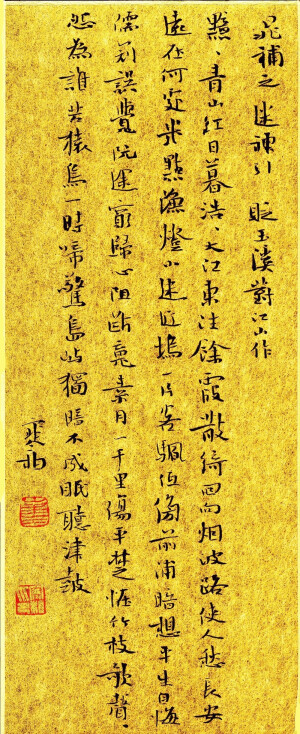 晁補之 迷神引 貶玉溪對江山作
黯、青山紅日暮浩、大江東注餘霞散綺向烟波路使人愁長安
遠在何處幾點漁燈小迷近塢一片客颿低傍前浦暗想平生自悔
儒冠誤覺阮途窮歸心阻斷魂素月一千里傷平楚怪竹枝歌聲、
怨為誰苦猿鳥一時啼驚島嶼燭暗不成眠聽津鼓